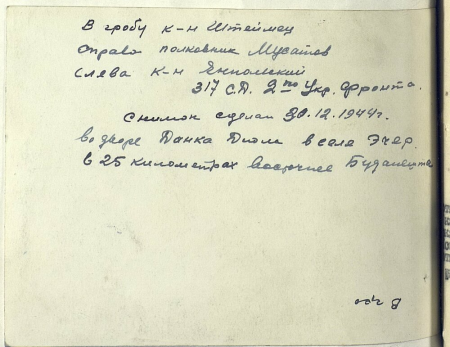 В гробу к-н Штеймец
справа полковник Мусатов
слева к-н Янпольский
317 С.Д. 2го Укр. фронта.
Снимок сделан 30.12.1944г.
во дворе Панка Диола в селе Эчер.
в 25 километрах восточнее Будапешта